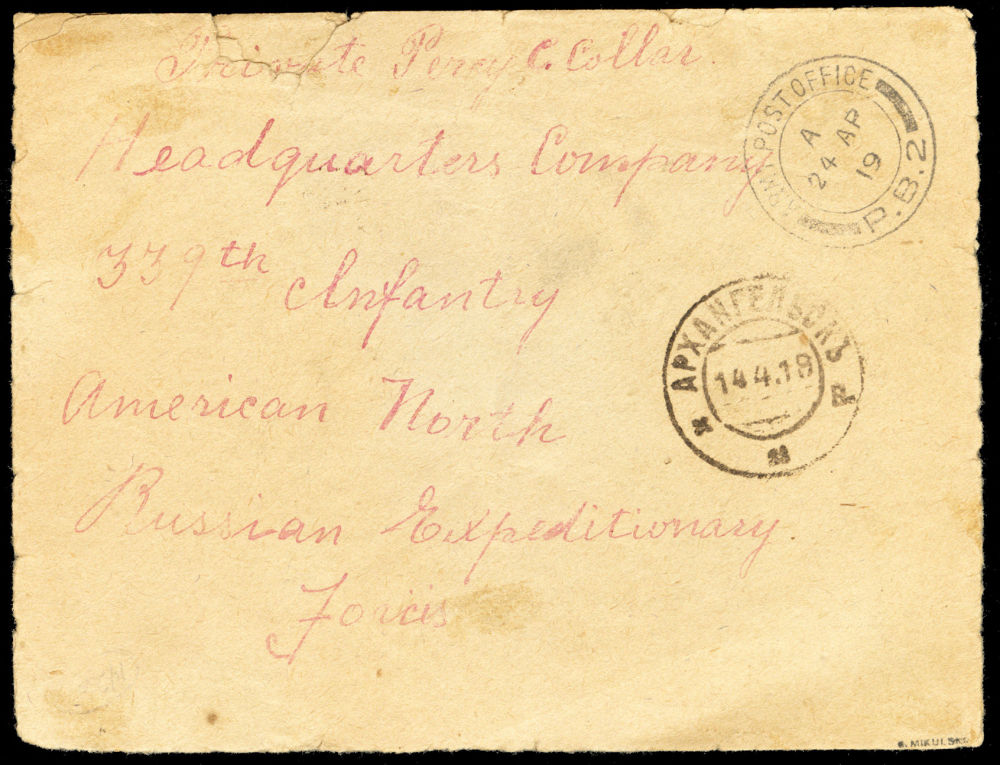 Private Perry C. Collar.
Headquarters Company
339th Infantry
American North
Russian Expeditionary.
Forces
ARMY POST OFFICE
A
24 AP
19
P.B.2
АРХАНГЕЛЬСКЪ
14.4.19
S. MIKULSKI